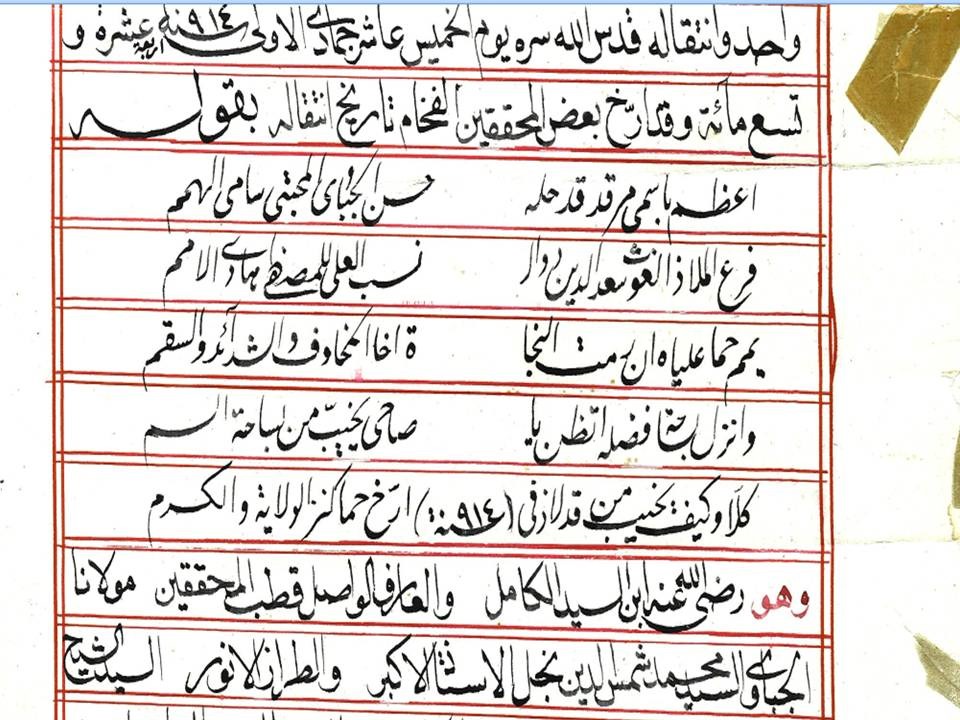 واحد وانتقاله قدس الله سره يوم الخميس عاشر جمادى الاولى سنة ٩١٤ اربعة عشرة و
تسع مائة وقد ارّخ بعض المحققين الفخام تاريخ انتقاله بقوله
اعظم باسمى مرقد قد حله حسن الجباوى المجتبى سامى الهمم
فرع الملاذ الغوث سعد الدين ذو ال نسب العلى للمصطفى هادى الامم
يمم حما علياه ان رمت النجا ة اخا المخاوف والشدائد والسقم
وانزل بساحة فضله اتظن يا صاحى يخيب من بساحته الم
كلا وكيف يخيب من قد لاذ فى (سنة ٩١٤) ارّخ حما كنز الولاية والكرم
وهو رضى الله عنه ابن السيد الكامل والعارف الواصل قطب المحققين مولانا
الجباوى السيد محمد شمس الدين نجل الاستاذ الاكبر والطراز الانور السيد الشيخ